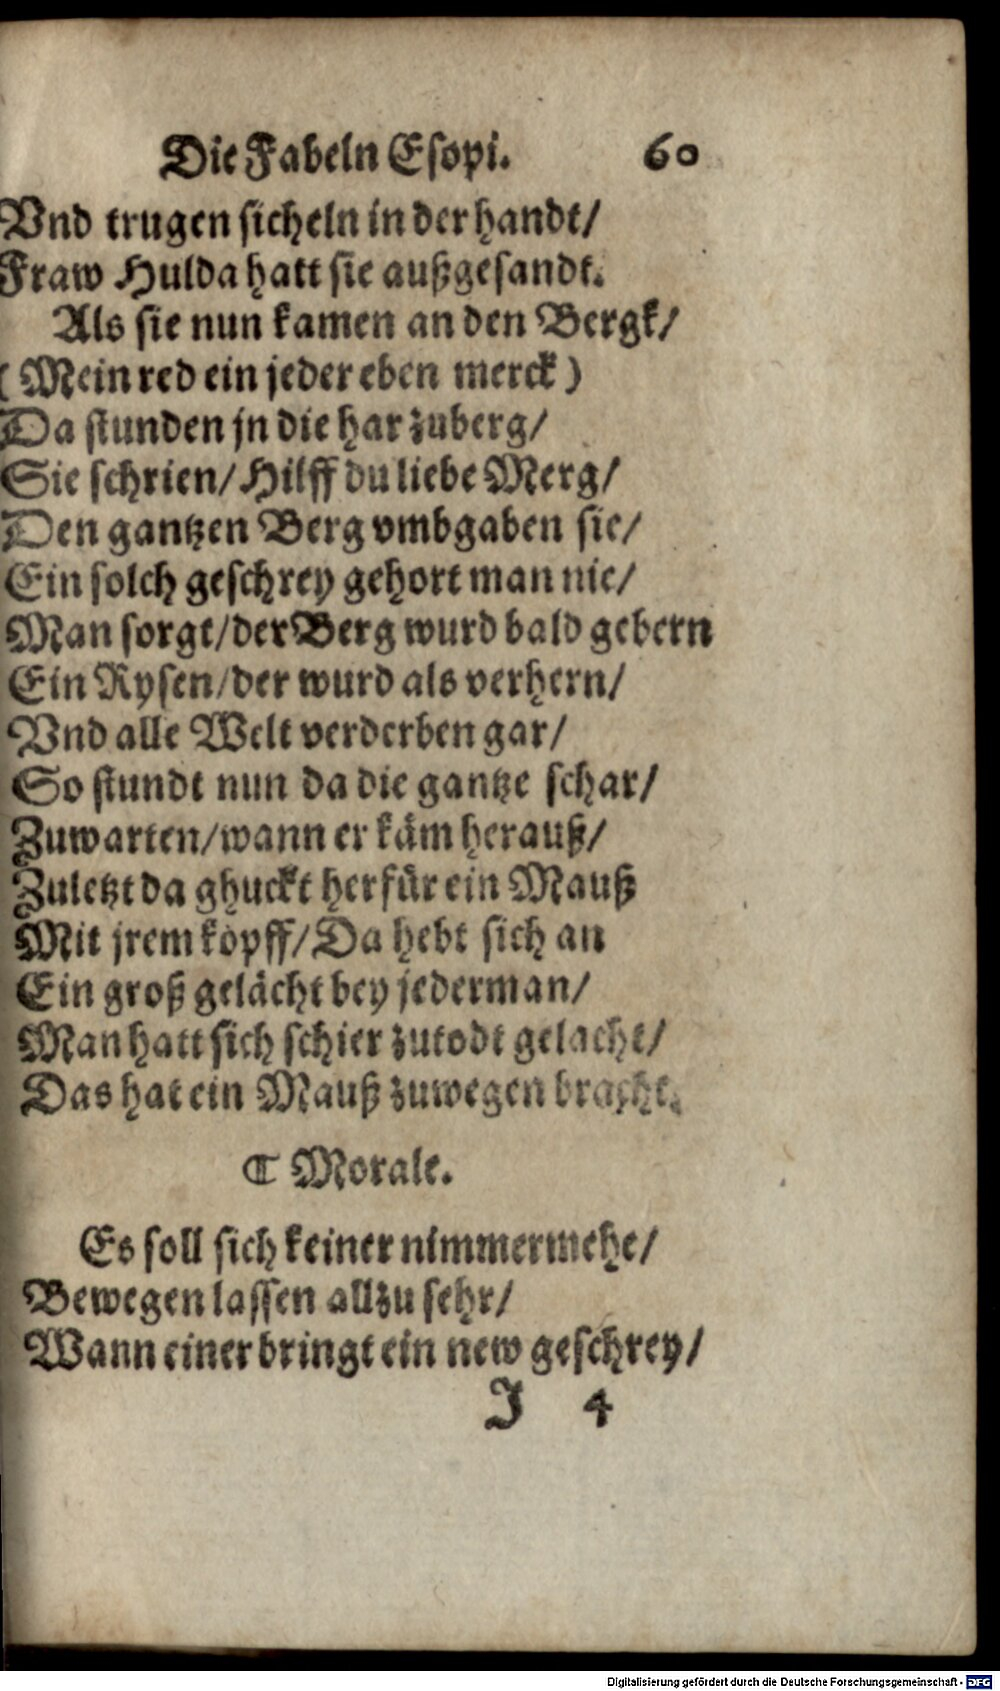 Die Fabeln Esopi. 60
Vnd trugen sicheln in der handt/
Fraw Hulda hatt sie außgesandt.
Als sie nun kamen an den Bergk/
( Mein red ein jeder eben merck )
Da stunden jn die har zuberg/
Sie schrien/ Hilff du liebe Merg/
Den gantzen Berg vmbgaben sie/
Ein solch geschrey gehort man nie/
Man sorgt/ der Berg wurd bald gebern
Ein Rysen/ der wurd als verhern/
Vnd alle Welt verderben gar/
So stundt nun da die gantze schar/
Zuwarten/ wann er käm herauß/
Zuletzt da ghuckt herfür ein Mauß
Mit jrem kopff/ Da hebt sich an
Ein groß gelächt bey jederman/
Man hatt sich schier zutodt gelacht/
Das hat ein Mauß zuwegen bracht.
¶ Morale.
Es soll sich keiner nimmermehe/
Bewegen lassen allzu sehr/
Wann einer bringt ein new geschrey/
J 4
Digitalisierung gefördert durch die Deutsche Forschungsgemeinschaft - DFG